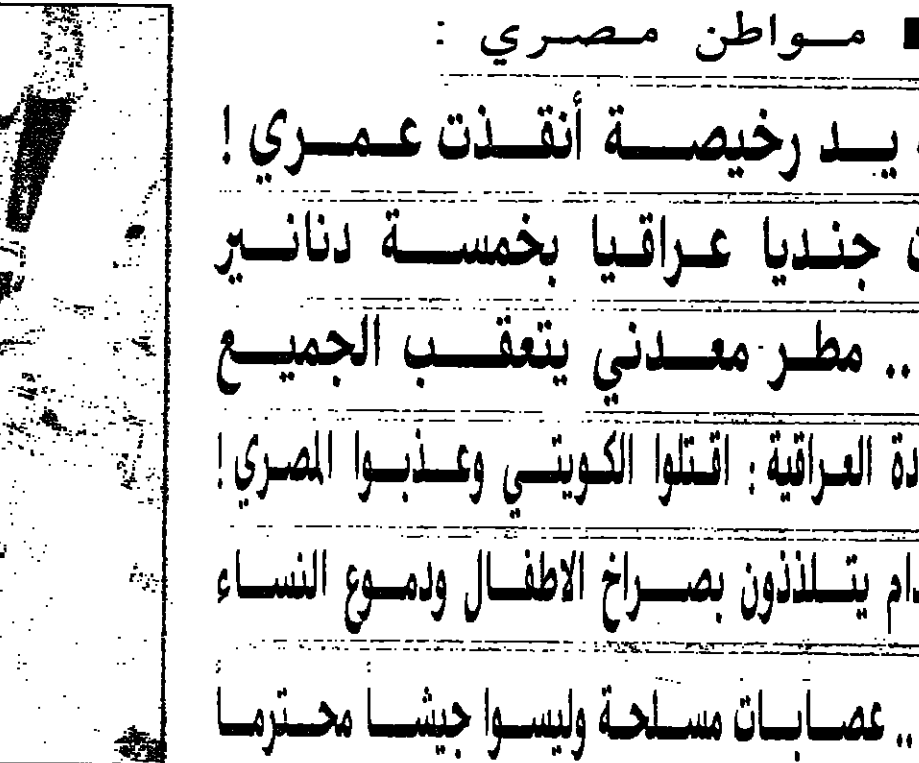 مواطن مصري :
يد رخيصة أنقذت عمري !
جنديا عراقيا بخمسة دنانير
.. مطر معدني يتعقب الجميع
العراقية : اقتلوا الكويتي وعذبوا المصري !
يتلذذون بصراخ الاطفال ودموع النساء
.. عصابات مسلحة وليسوا جيشاً محترماً